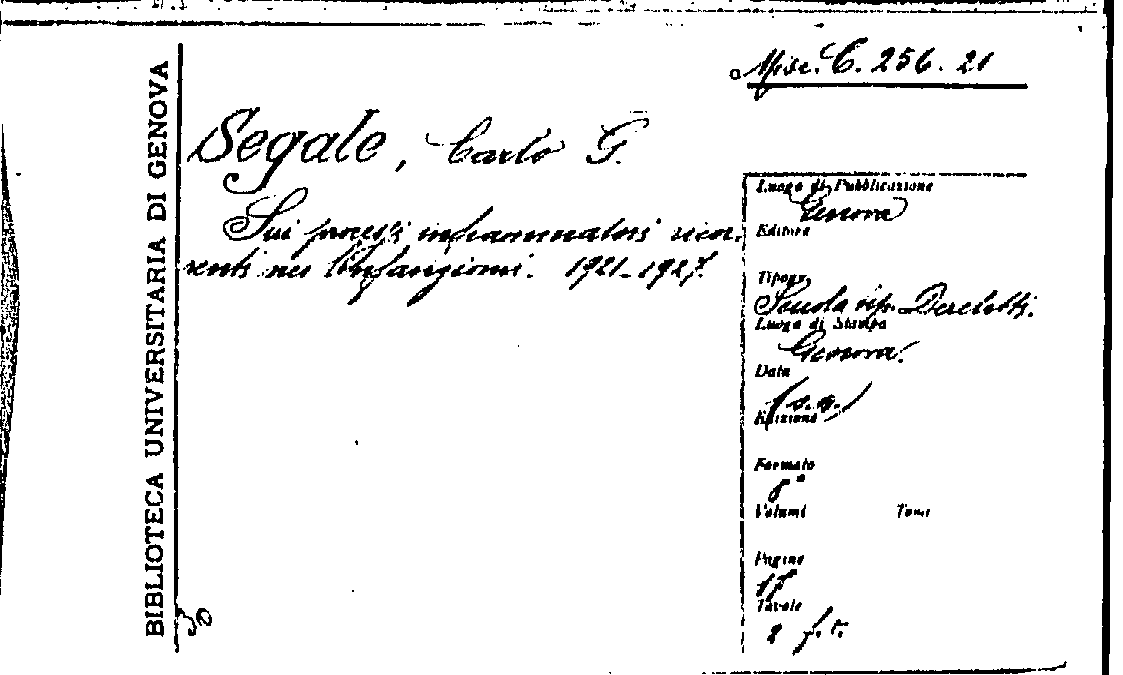 Misc. C. 256. 21
BIBLIOTECA UNIVERSITARIA DI GENOVA
Segale, Carlo G.
Sui processi infiammatori ricor-
renti nei linfangiomi. 1921-1927.
Luogo di Pubblicazione
Genova
Editore
Tipogr.
Scuola tip. Derelitti.
Luogo di Stampa
Genova.
Data
(s.a.)
Edizione
Formato
8°
Volumi Tomi
Pagine
Tavole
2 f.t.
30